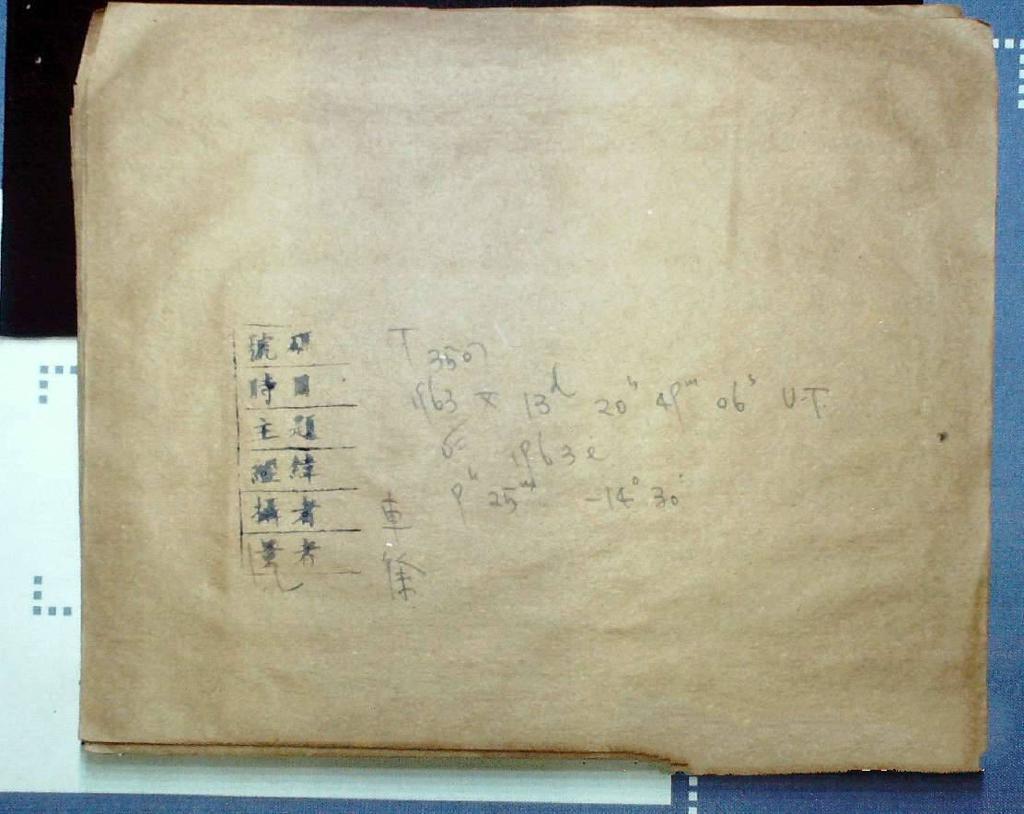 號碼 T 3507
時日 1963 X 13d 20h 49m 06s U.T.
主題 1963e
經緯 9h 25m -14° 30'
攝者 車
量者 徐